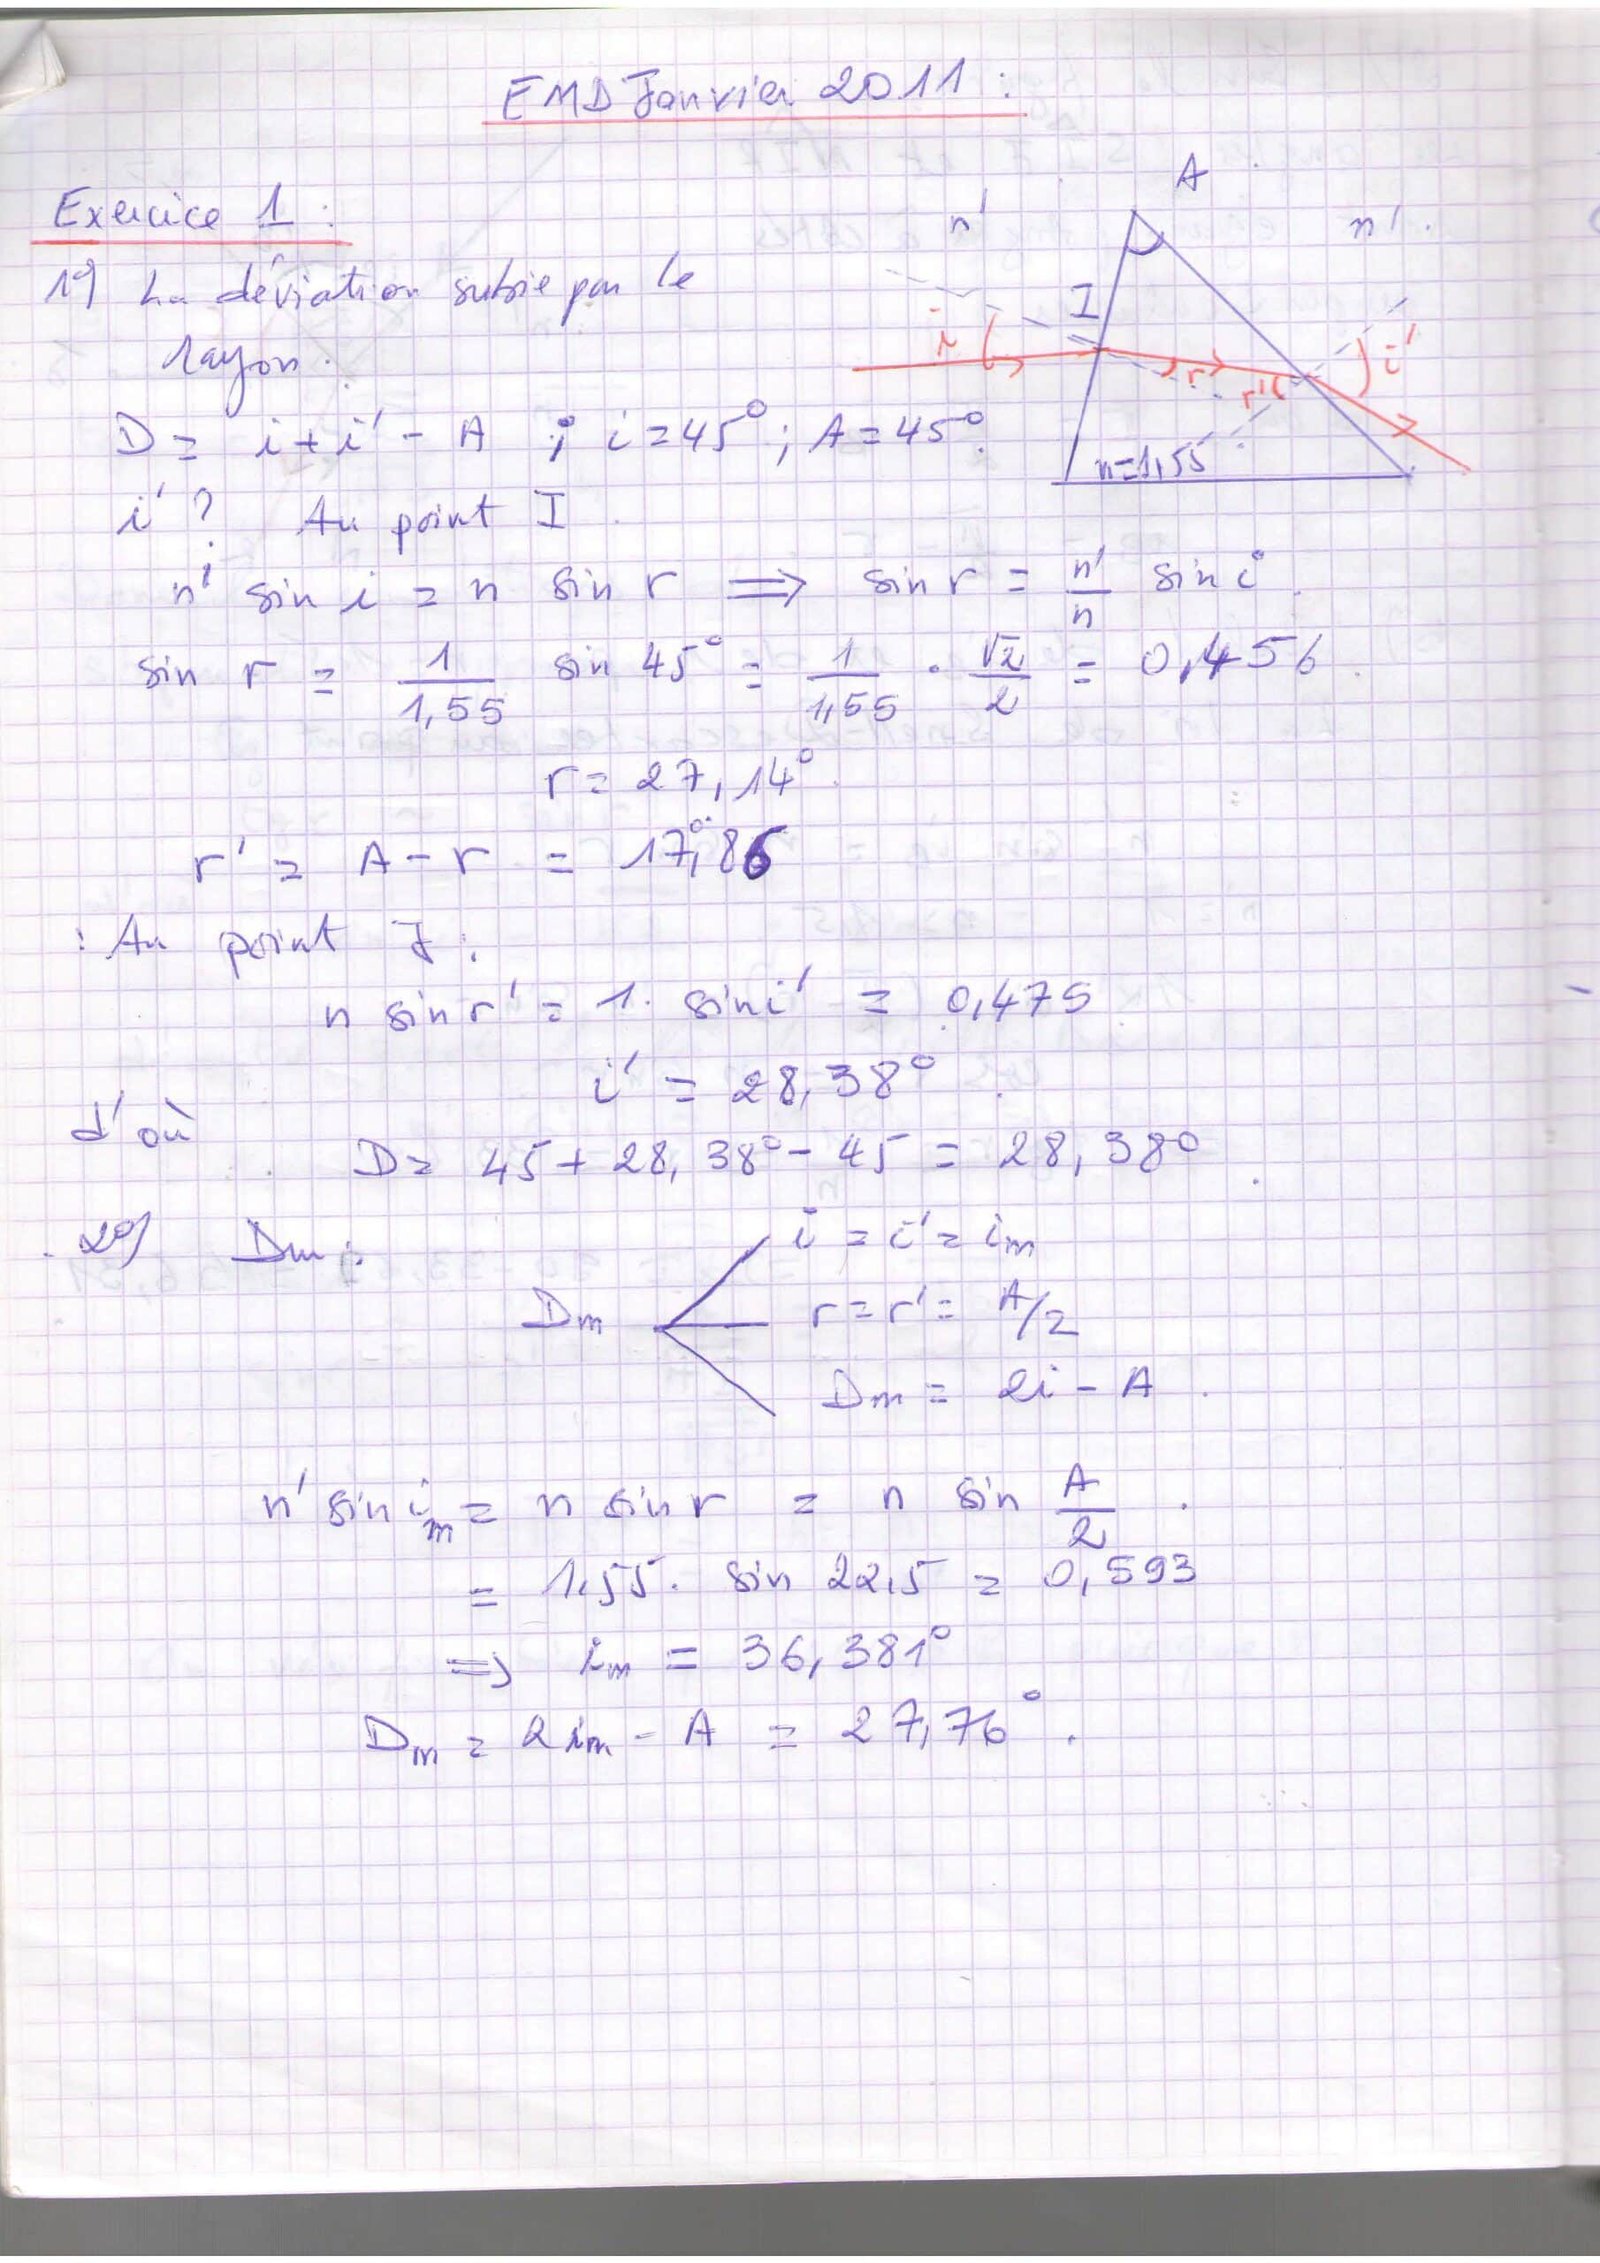 EMD Janvier 2011 :
Exercice 1 :
A
n'
n'.
I
i
r
r'
i'
n=1,55
1°) La déviation subie par le
rayon.
D = i + i' - A ; i = 45° ; A = 45°.
i' ? Au point I.
n' sin i = n sin r ⟹ sin r = n'/n sin i.
sin r = 1/1,55 sin 45° = 1/1,55 . √2/2 = 0,456.
r = 27,14°.
r' = A - r = 17°,86
: Au point J :
n sin r' = 1. sin i' = 0,475
i' = 28,38°.
d'où
D = 45 + 28,38° - 45 = 28,38°.
2°) Dm :
i = i' = im
Dm
r = r' = A/2
Dm = 2i - A.
n' sin im = n sin r = n sin A/2.
= 1,55. sin 22,5 = 0,593
⟹ im = 36,381°
Dm = 2im - A = 27,76°.